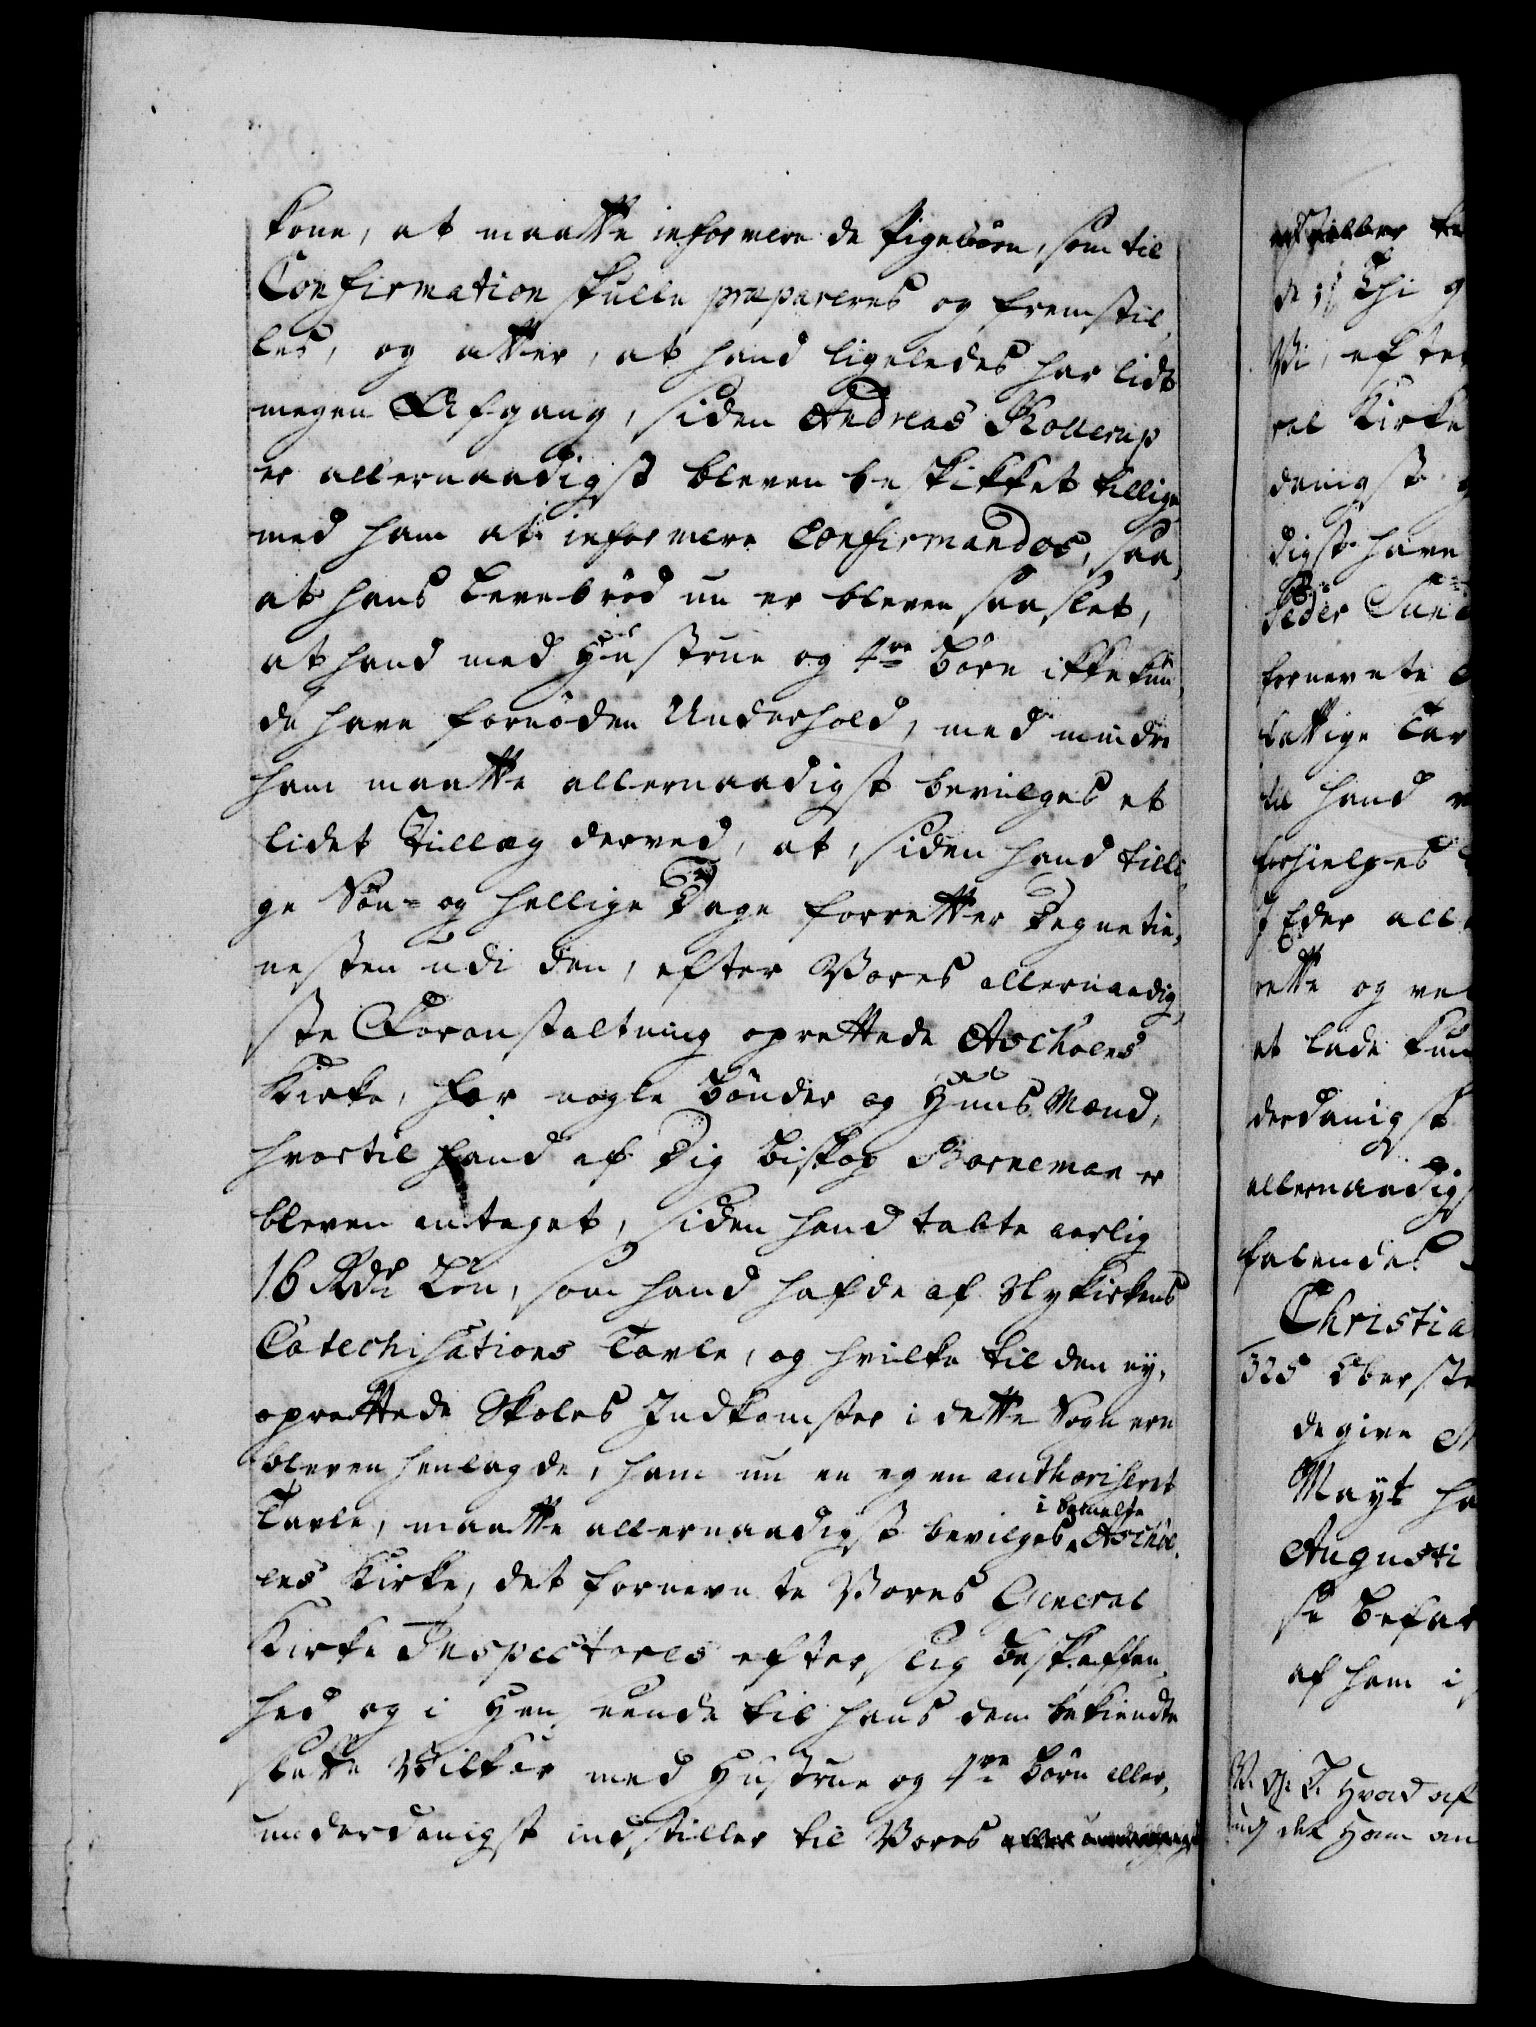 kone, at maatte informere de Pigebörn, som til
Confirmation skulle præpareres og fremstil,
les, og atter, at hand ligeledes har lidt
megen Afgang, siden Andreas Kollerup
er allernaadigst bleven beskikket tillige
med ham at informere Confirmandos, saa,
at hans Levebröd nu er bleven saa slet,
at hand med Hustrue og 4re Börn ikke kun,
de have fornöden Underhold, med mindre
ham maatte allernaadigst bevilges et
lidet Tillæg derved, at, siden hand tilli,
ge Sön- og hellige Dage forretter Degnetie,
nesten udi den, efter Vores allernaadig,
ste Foranstaltning oprettede Aschöens
Kirke, for nogle Bönder og Huus Mænd,
hvortil hand af Dig Biskop Borneman er
bleven antaget, siden hand tabte aarlig
16 Rdr Lön, som hand hafde af Nykirkens
Catechisations Tavle, og hvilke til den ny,
oprettede Skoles Indkomster i dette Sogn ere
bleven henlagde, ham nu en egen authoriseret
Tavle, maatte allernaadigst bevilges i bemelte Aschöe,
ens Kirke, det fornevnte Vores General
Kirke Inspectores efter slig Beskaffen,
hed og i Henseende til hans dem bekiendte
slette Vilkaar med Hustrue og 4re Börn aller,
underdanigst indstiller til Vores
de
Vi, efter
ral Kirke
danigst
digst have
Peder
fornevnte
fattige
hand
forhielpes
Eder all
rette og
at lade
derdanigst
allernaadigst
falendes
Christia
325 Oberste
degive
Mayt ha
Augusti
se Befal
af ham i
Hvad af
det Ham an